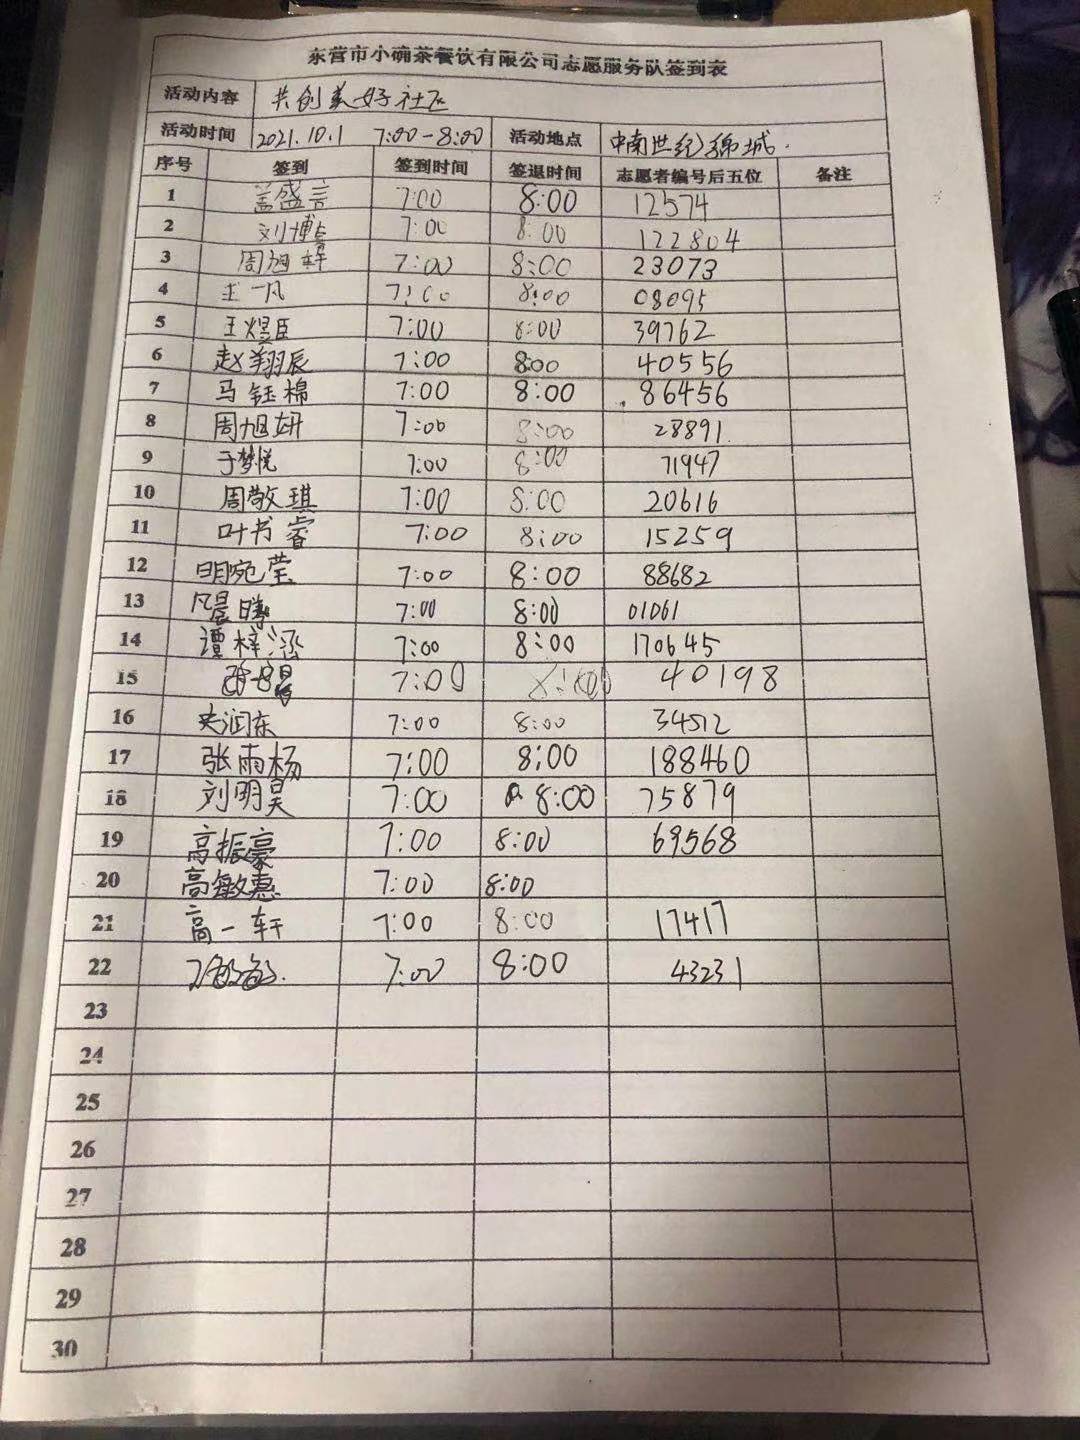 东营市小确茶餐饮有限公司志愿服务队签到表
活动内容 共创美好社区
活动时间 2021.10.1 7:00-8:00 活动地点 中南世纪锦城.
序号 签到 签到时间 签退时间 志愿者编号后五位 备注
1 盖盛言 7:00 8:00 12574
2 刘博 7:00 8:00 122804
3 周旭梓 7:00 8:00 23073
4 王一凡 7:00 8:00 08095
5 王煜臣 7:00 8:00 39762
6 赵翔辰 7:00 8:00 40556
7 马钰棉 7:00 8:00 86456
8 周旭妍 7:00 8:00 28891
9 于梦悦 7:00 8:00 71947
10 周敬琪 7:00 8:00 20616
11 叶书睿 7:00 8:00 15259
12 明宛莹 7:00 8:00 88682
13 7:00 8:00 01061
14 谭梓涵 7:00 8:00 170645
15 7:00 8:00 40198
16 史润东 7:00 8:00 34512
17 张雨杨 7:00 8:00 188460
18 刘明昊 7:00 8:00 75879
19 高振豪 7:00 8:00 69568
20 高敏惠 7:00 8:00
21 高一轩 7:00 8:00 17417
22 7:00 8:00 43231
23
24
25
26
27
28
29
30